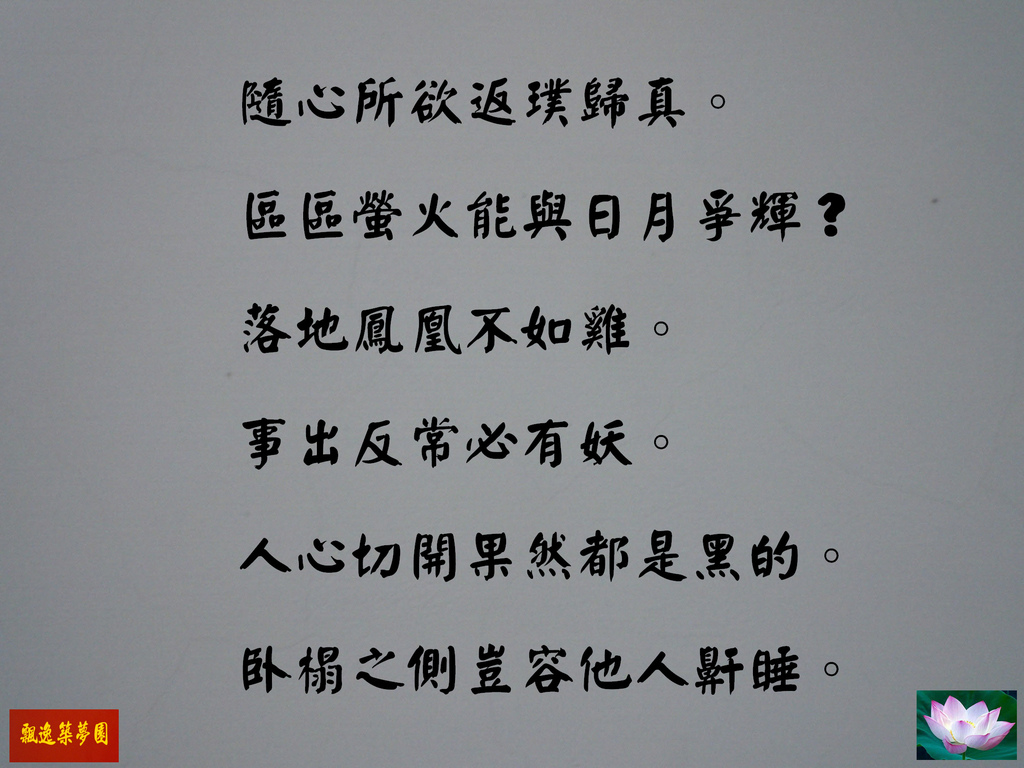 隨心所欲返璞歸真。
區區螢火能與日月爭輝？
落地鳳凰不如雞。
事出反常必有妖。
人心切開果然都是黑的。
臥榻之側豈容他人鼾睡。
飄逸築夢園